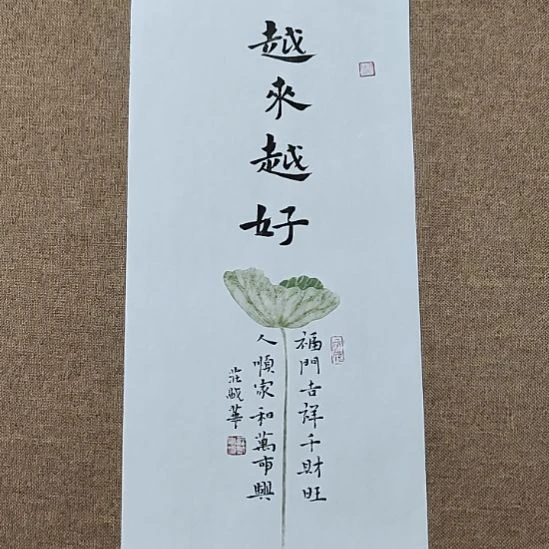 越來越好
福門吉祥千財旺
人順家和萬市興
莊賊華